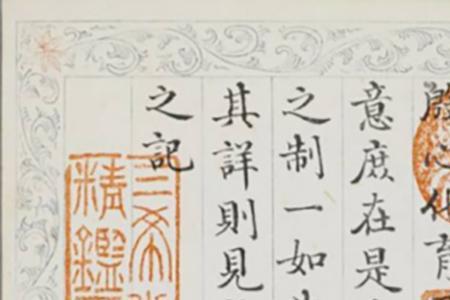 殷心化育
意庶在是
之制一如
其詳則見
之記
三希
精鑑